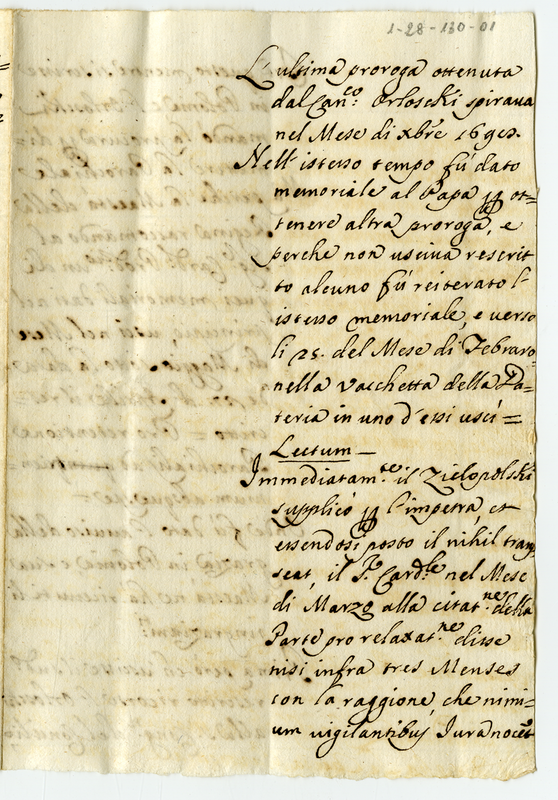 1-28-130-01
L'ultima proroga ottenuta
dal Can.co Orloscki spirava
nel Mese di xbre 1692.
Nell'istesso tempo fù dato
memoriale al Papa ot=
tenere altra proroga, e
perche non usciva rescrit
to alcuno fù reiterato l'
istesso memoriale, e verso
li 25. del Mese di Febraro
nella vacchetta della Da=
teria in uno d'essi uscì =
Lectum —
Immediatam.te il Zielopolski
supplicò l'impetra, et
essendosi posto il nihil tran
seat, il Card.le nel Mese
di Marzo alla citat.ne della
Parte pro relaxat.ne disse
nisi infra tres Menses
con la raggione, che nimi=
um vigilantibus Jura nocēt